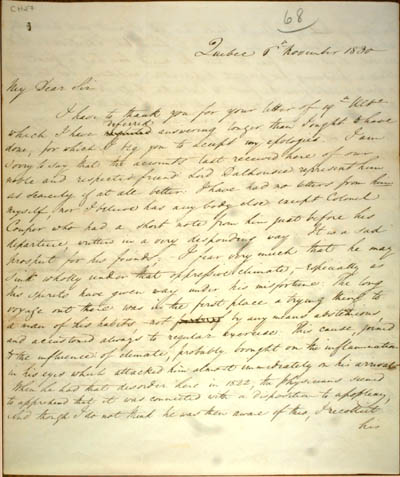 CH27
68
Quebec 6th November 1830
My Dear Sir
I have to thank you for your letter of 19th Ulto
which I have deferred answering longer than I ought to have
done, for which I beg you to accept my apologies. I am
sorry to say that the accounts last received here of our
noble and respected friend Lord Dalhousie represent him
as scarcely if at all better. I have had no letters from him
myself, nor I believe has any body else except Colonel
Couper who had a short note from him just before his
departure, written in a very desponding way. It is a sad
prospect for his friends. I fear very much that he may
sink wholly under that oppressive climate, especially as
his spirits have given way under his misfortune. The long
voyage out there was in the first place a trying thing to
a man of his habits, not by any means abstemious,
and accustomed always to regular exercise. This cause, joined
to the influence of climate, probably brought on the inflammation
in his eyes which attacked him almost immediately on his arrival.
When he had that disorder here in 1822, the Physicians seemed
to apprehend that it was connected with a disposition to apoplexy,
and though I do not think he was then aware of this, I recollect
his